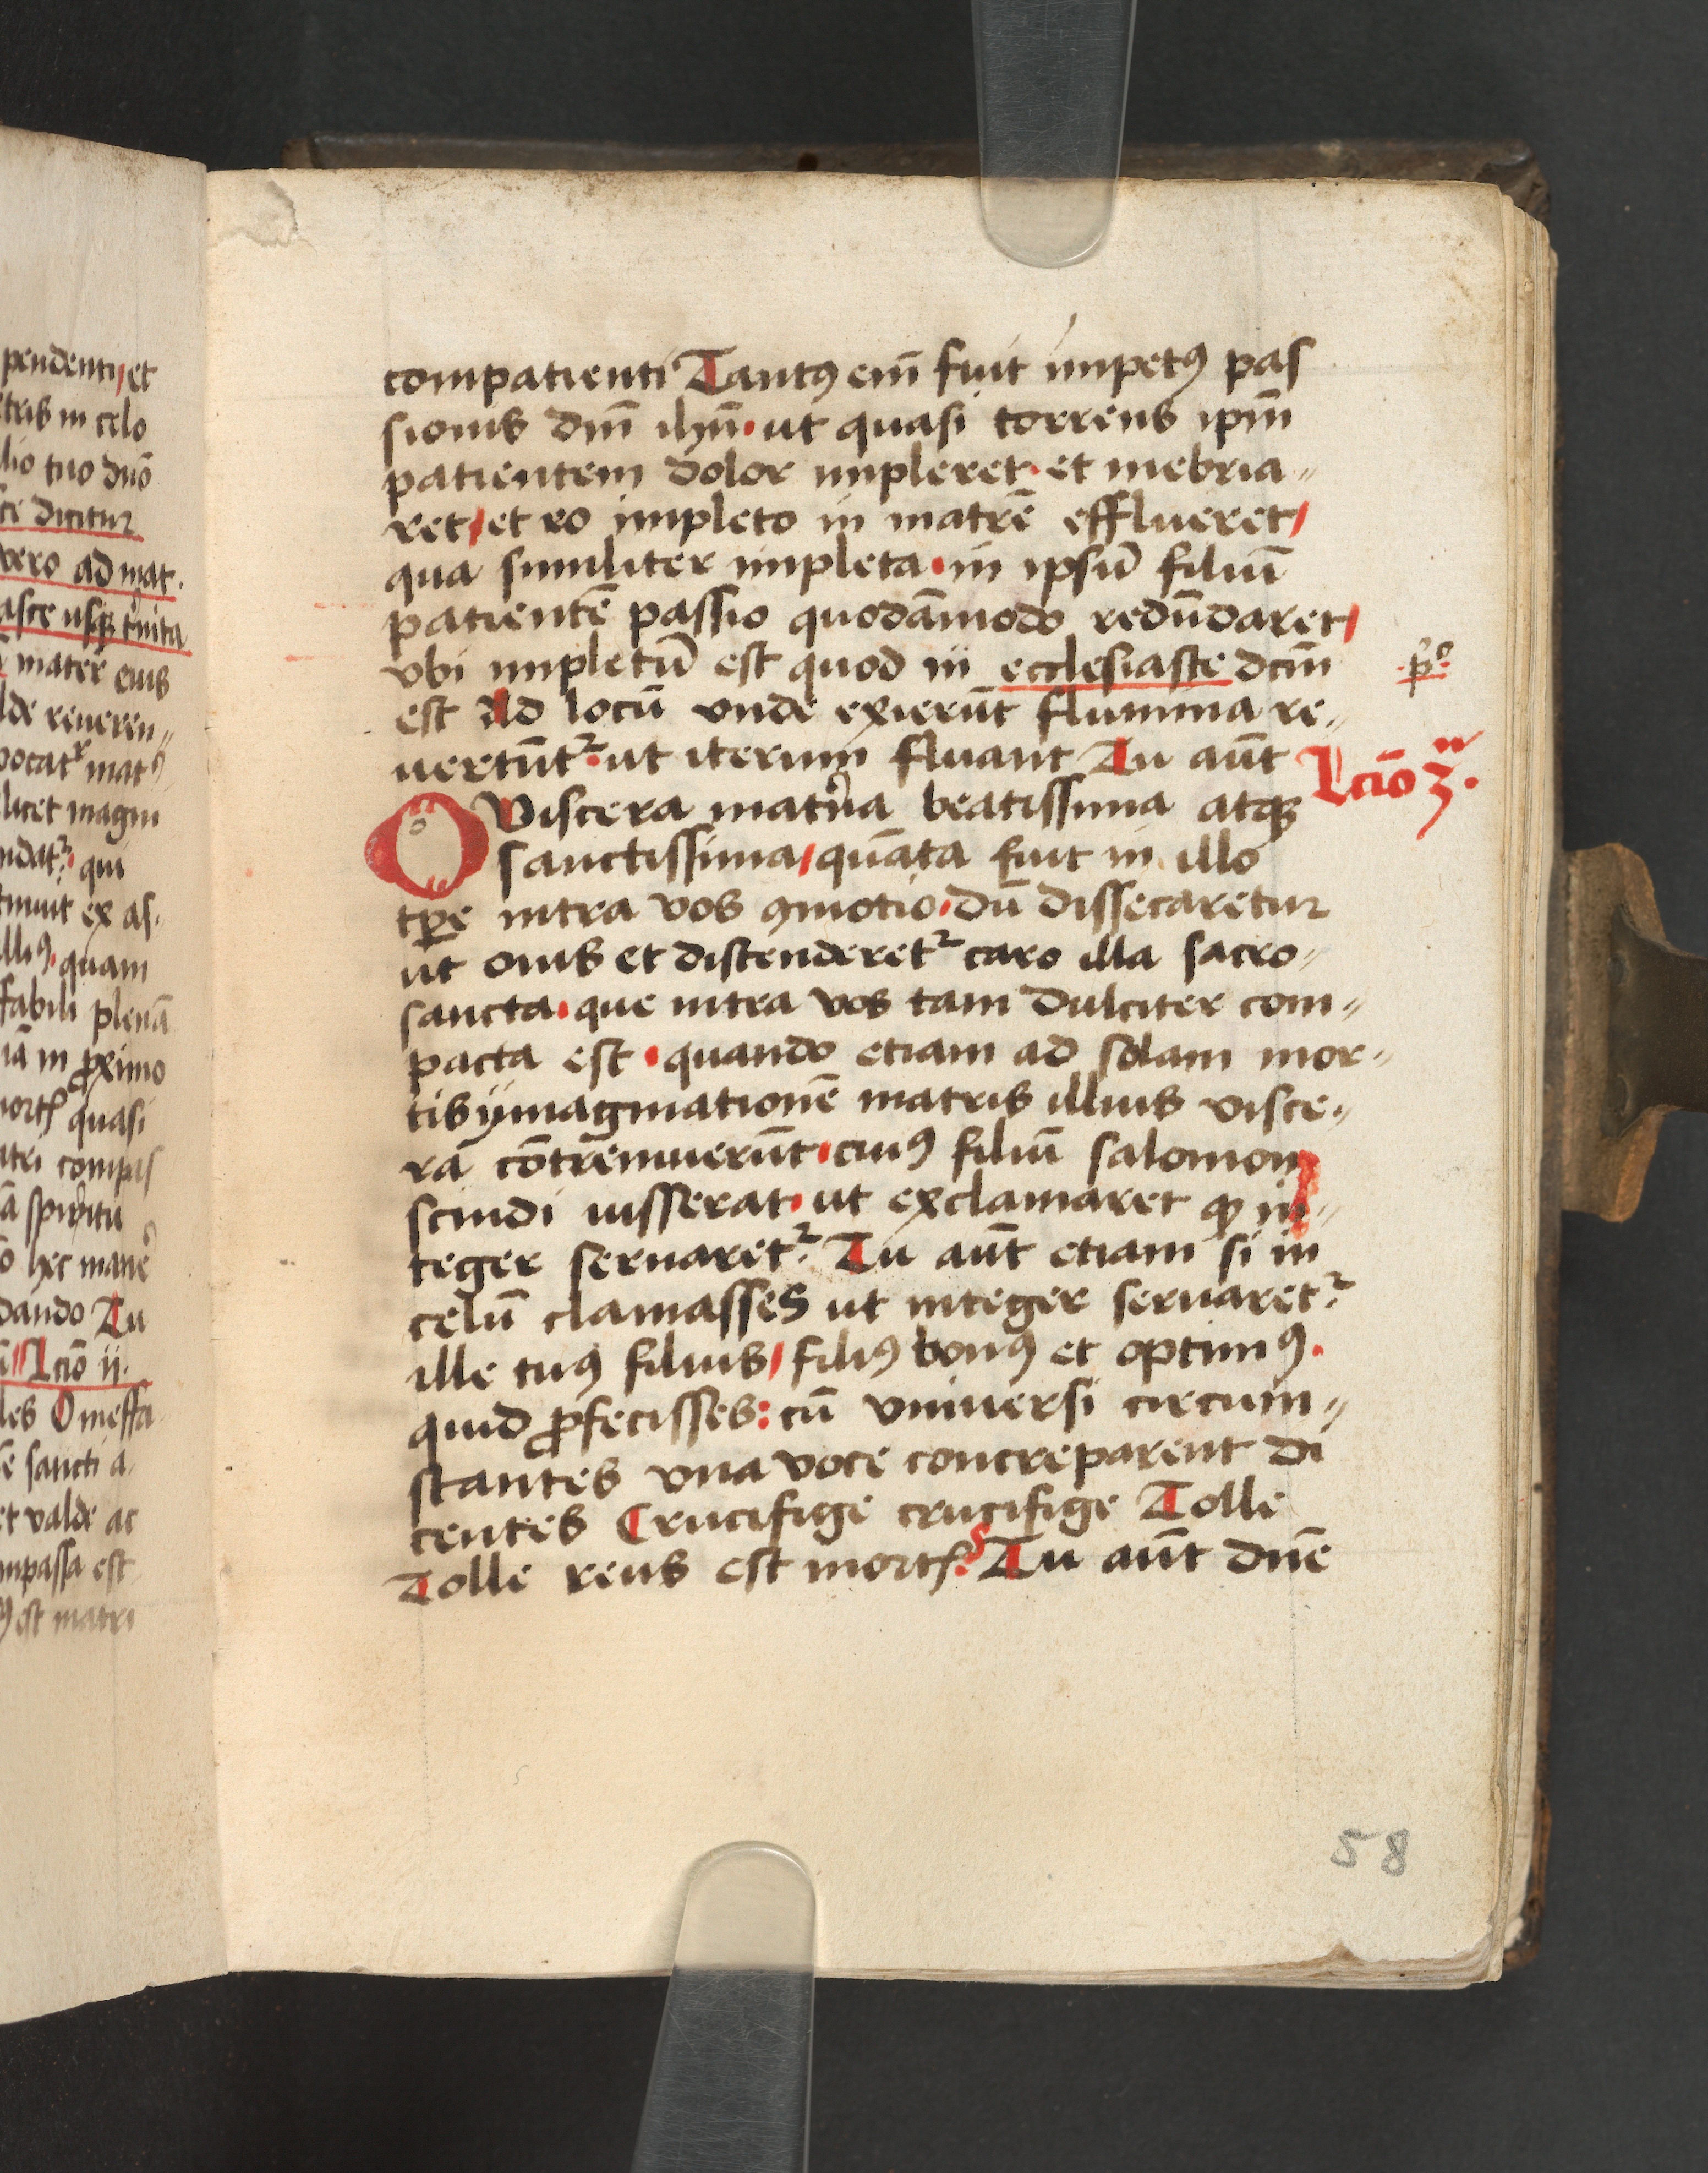 pendenti et
tris in celo
lio tuo dnō
ci dicitur
vero ad mat.
asce usqꝫ
mater eius
lde reueren〃
vocatʳ matꝰ
licet magni
ndatʳ qui
tinuit ex as.
lliꝰ quam
ffabili plenā
iā in ꝓximo
quasi
atri compas
ā spiritu
hec
dando Tu
Lcīo ij.
les O ineffa
sancti a
et valde ac
mpassa est
est matri
compatienti Tantꝰ em̄ fuit impetꝰ pas
sionis dm̄ ihm̄. ut quasi torrens ipm̄
patientem dolor impleret. et inebria〃
ret/ et eo impleto in matrē efflueret/
qua similiter impleta. in ipsū filiū
patientē passio quodāmodo redūdaret/
vbi impletū est quod in ecclesiaste dcm̄
.pº.
est Ad locū vnde exierūt flumina re〃
uertūtʳ. ut iterum fluant Tu aūt
Lcīo 3.
O Viscera mat'na beatissima atqꝫ
sanctissima/ quāta fuit in illo
tꝑe intra vos ꝯmotio. dū dissecaretur
ut ouis et distenderetʳ caro illa sacro〃
sancta. que intra vos tam dulciter com〃
pacta est. quando etiam ad solam mor〃
tis ymaginationē matris illius visce〃
ra cōtremuerūt. cuiꝰ filiū salomon
scindi iusserat. ut exclamaret ꝙ in〃
teger seruaretʳ. Tu aūt etiam si in
celū clamasses ut integer seruaretʳ
ille tuꝰ filius/ filiꝰ bonꝰ et optimꝰ.
quid ꝓfecisses: cū vniuersi circum〃
stantes vna voce concreparent di
centes Crucifige crucifige Tolle
Tolle reus est mortꝭ. Tu aūt dn̄e
58